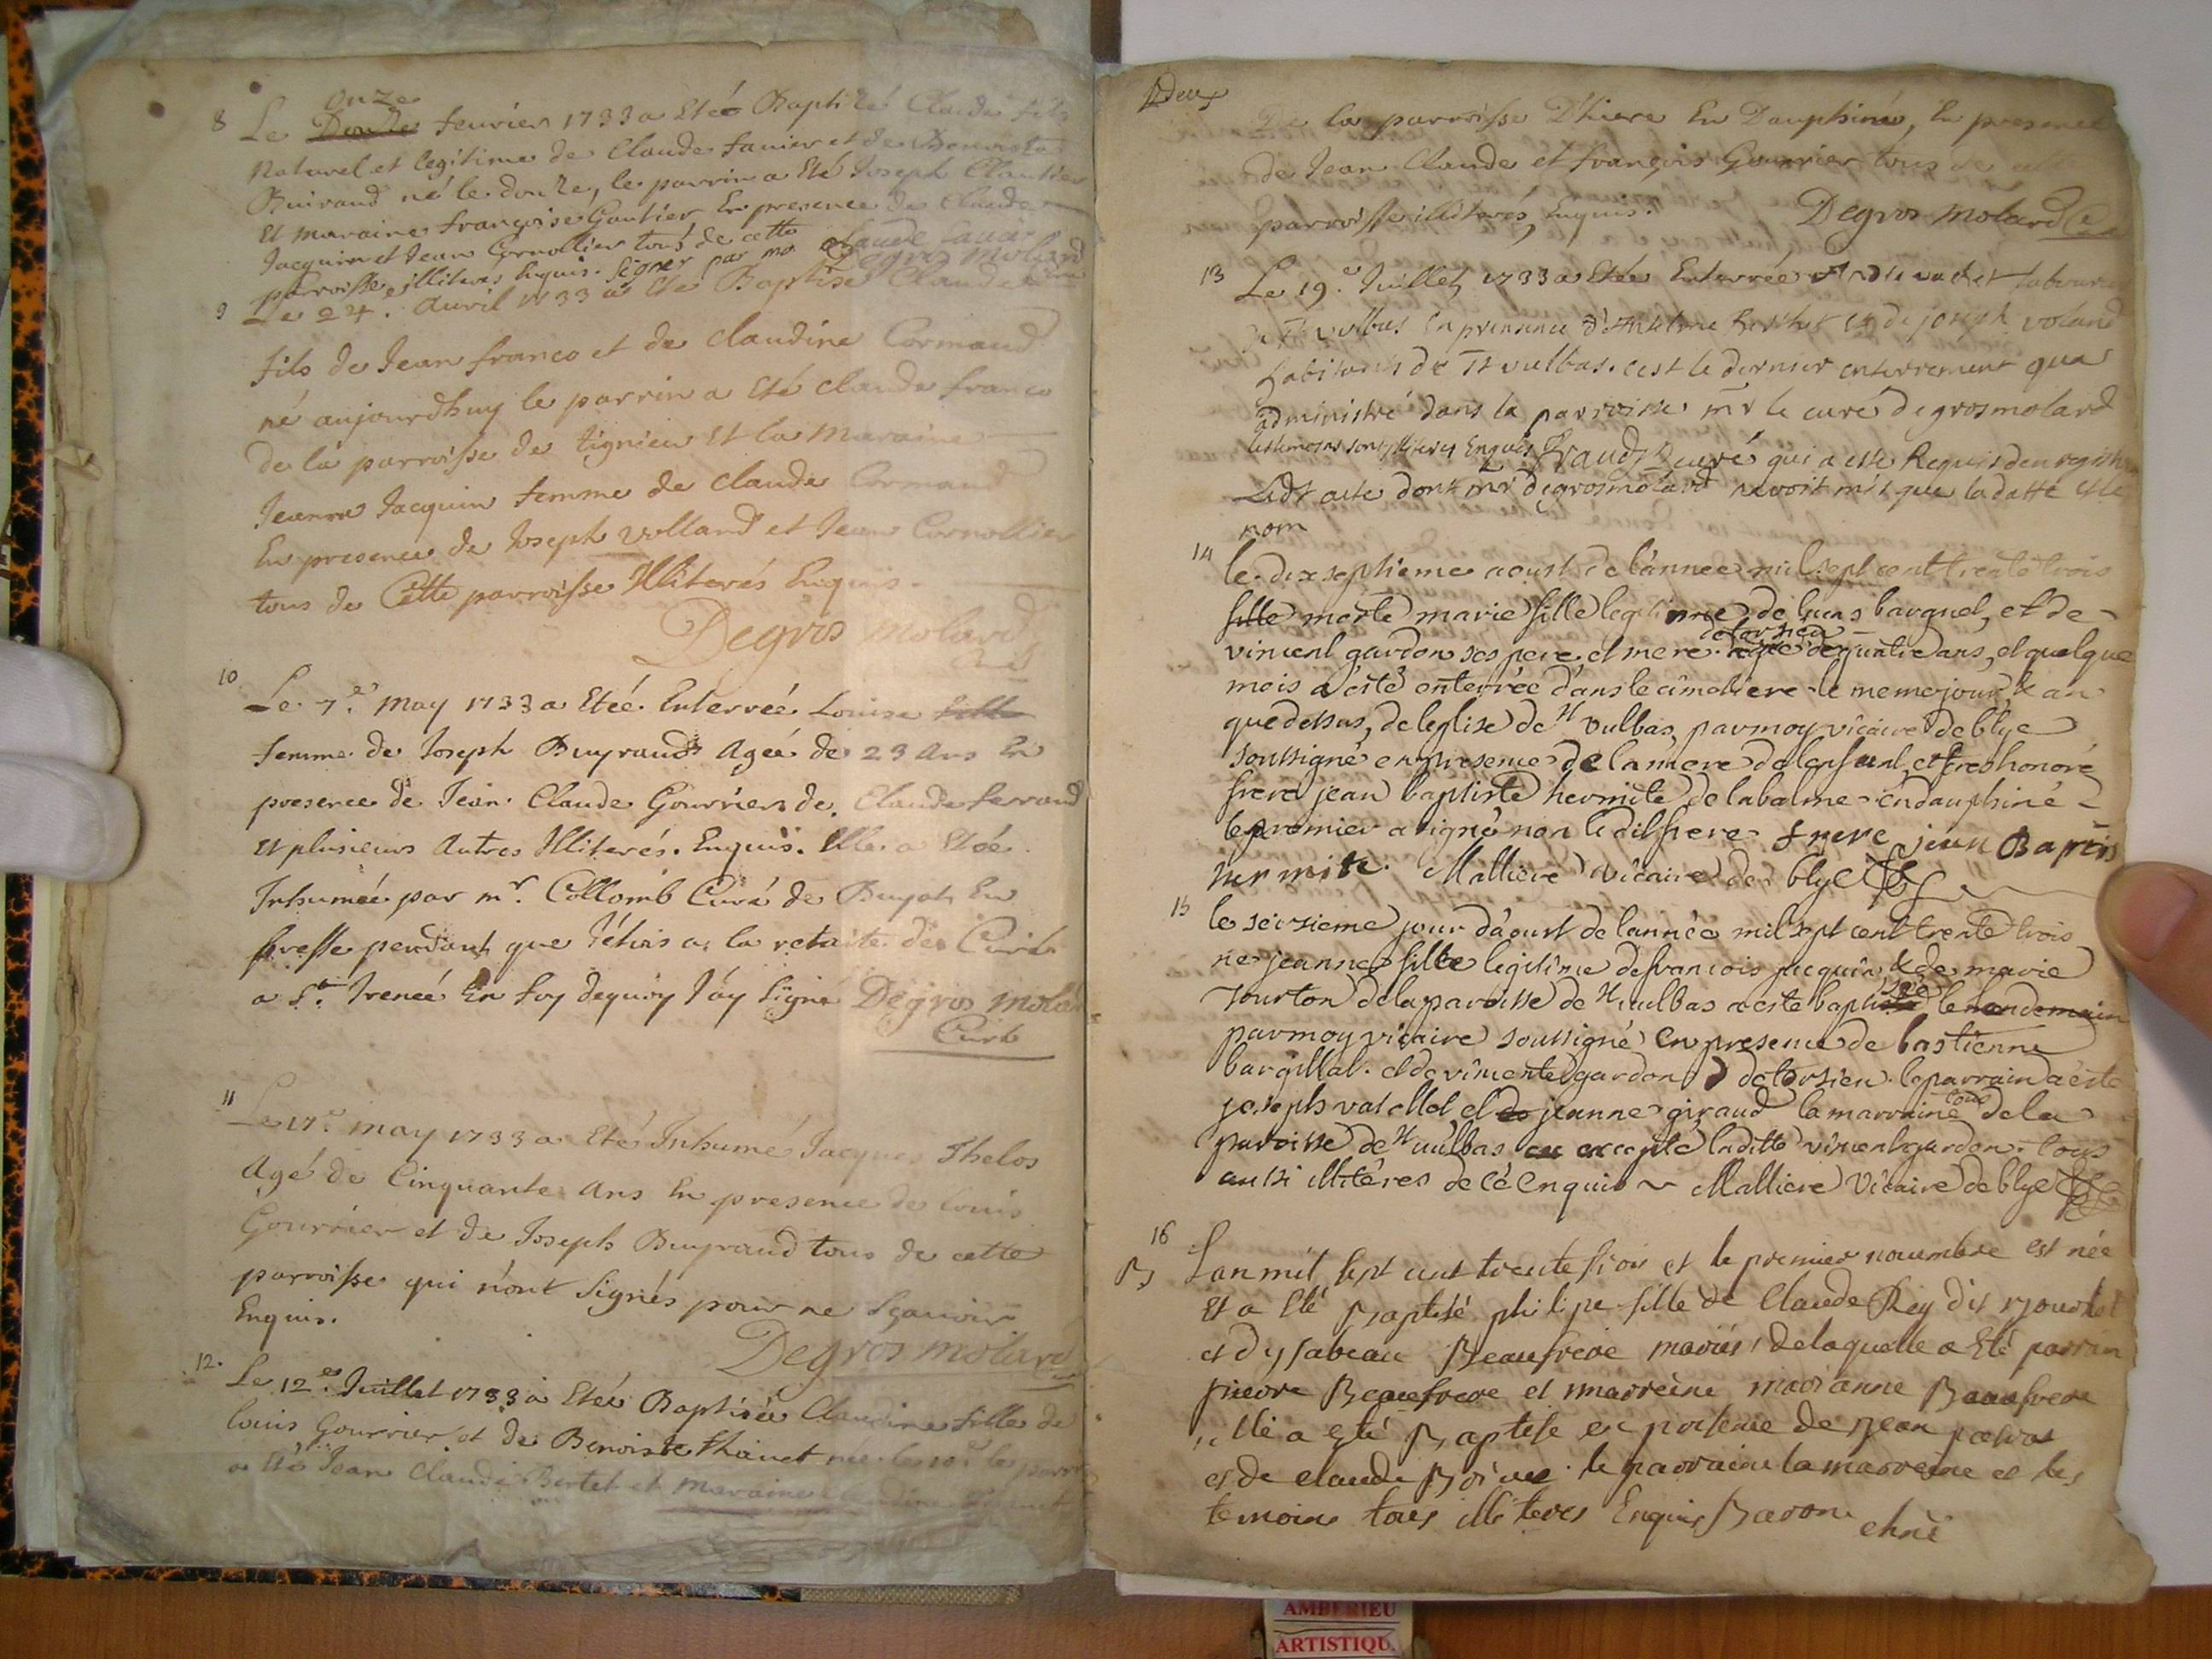 8 Le onze Douze feurier 1733 a Eteé Baptizé Claude fils
Naturel et legitime de Claude fauier et de Benoiste
Buiraud né le douze, le parrin a Eté Joseph Clautier
Et maraine françoise Gautier En presence de Claude
Jacquin et Jean Cornollier tous de cette
parroisse illiteres Enquis. Signer par mo Claude fauier
Degros molard
9 Le 24. Auril 1733 a Eté Baptisé Claude
fils de Jean franco et de claudine Cormaud
né aujourdhuy le parrin a Eté claude franco
de la parroisse de tignieu Et la maraine
Jeanne Jacquin femme de claude Cormaud
En presence de Joseph volland et Jean Cornollier
tous de Cette parroisse Illiterés Enquis.
Degros molard
Curé
10
Le 7.e May 1733 a Eteé Enterreé Louise fille
femme de Joseph Buyraud Ageé de 23 Ans En
presence de Jean Claude Gourrier de Claude ferrand
Et plusieurs Autres Illiterés. Enquis. Elle a Eteé
Inhumeé par mr. Collomb Curé de
bresse pendant que J'étois a la retaite des Curés
a St. Ireneé En foy dequoy J'ay Signé Degros Molard
Curé
11
Le 17.e may 1733 a Eté Inhumé Jacques Thelos
Agé de Cinquante Ans En presence de Louis
Gourrier et de Joseph Buyraud tous de cette
parroisse qui n'ont Signés pour ne Sçauoir
Enquis.
Degros molard
12. Le 12.e Juillet 1733 a Eteé Baptiseé Claudine fille de
Louis Gourrier et de Benoiste thouet née le 10.e le parr
a Eté Jean Claude Bertet et Maraine Claudine
Deux
De la parroisse D'hiere En Dauphiné, En presence
de Jean Claude et françois Gourrier tous de cette
parroisse illiterés Enquis. Degros Molard Cu
13 Le 19.e Juillet 1733 a Eteé Enterreé vachet laboureur
de St vulbas en presence d'Anselme et de joseph voland
habitants de St vulbas. cest le dernier enterrement qua
administré dans la parroisse mr le curé degrosmolard
les temoins sont illiteres Enquis curé qui a este Requis denregistrer
Ledt acte dont mr degrosmolard navoit mis que la datte et le
nom
14
le dix septieme aoust de lannee mil sept cent trente trois
fille morte marie fille legitime de barquel, et de
vincent gardon ses pere et mere de torsieu agée de quatre ans, et quelque
mois a esté enterrée dans le cimetiere le meme jour, & an
que dessus, de leglise de St vulbas, par moy vicaire de blye
soussigné en presence de la mere de lenfant, et tres honoré
frere jean baptiste hermite de la balme en dauphiné
le premier a signé non ledit frere. frere jean Baptis
hermite. Malliere vicaire de blye
15
le seizieme jour d'aoust de lannée mil sept cent trente trois
née jeanne fille legitime de francois jacquin & de marie
tourton de la paroisse de St vulbas a este baptisée le landemain
par moy vicaire soussigné en presence de bastienne
bargillat. et de vincente gardon de torsieu. le parrain a este
joseph vatellet et jeanne giraud la marraine tous de la
paroisse de St vulbas excepté laditte vincent gardon. tous
aussi illitéres de cé Enquis Malliere Vicaire de blye
16
B Lan mil sept cent trente trois et le premier nouembre est née
Et a Eté Baptisé philipe fille de Claude Rey dit
et dysabeau Beaufrere mariés, de laquelle a Eté parrin
pierre Beaufrere et marreine marianne Beaufrere
elle a eté Baptisé en presence de jean
et de claude le parraine la marreine et les
temoins tous illiteres Enquis Baron
AMBERIEU
ARTISTIQU